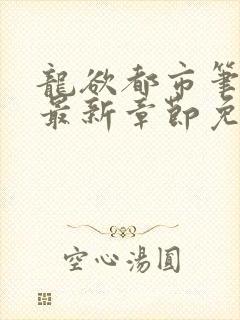 龍欲都市筆
最新章節免
空心湯圓